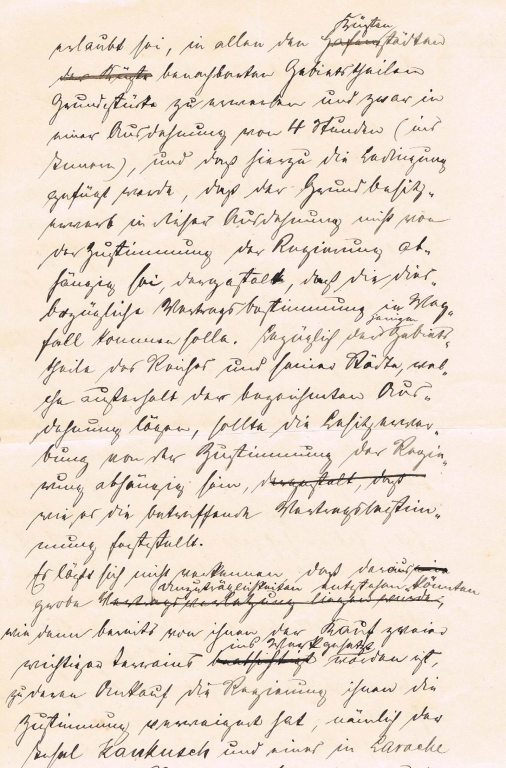 Küsten
erlaubt sei, in allen den Hafenstädten
der Küste benachbarten Gebietstheilen
Grundstücke zu erwerben und zwar in
einer Ausdehnung von 4 Stunden (ins
Innere), und daß hierzu die Bedingung
gefügt werde, daß der Grundbesitz-
erwerb in dieser Ausdehnung nicht von
der Zustimmung der Regierung ab-
hängig sei, dergestalt, daß die dies-
bezügliche Vertragsbestimmung in Weg-
fall kommen solle. Bezüglich derjenigen Gebiets-
theile des Reiches und seiner Städte, wel-
che außerhalb der bezeichneten Aus-
dehnung lägen, sollte die Besitzerwer-
bung von der Zustimmung der Regie-
rung abhängig sein, dergestalt, daß
wie es die betreffende Vertragsbestim-
mung feststellt.
Es läßt sich nicht verkennen, daß daraus
Unzuträglichkeiten entstehen könnten
grobe Vertragsverletzung liegen würde,
wie denn bereits von ihnen der Kauf zweier
ins Werk gesetzt
wichtiger Terrains worden ist,
zu deren Ankauf die Regierung ihnen die
Zustimmung verweigert hat, nämlich der
Insel und eines in Laroche